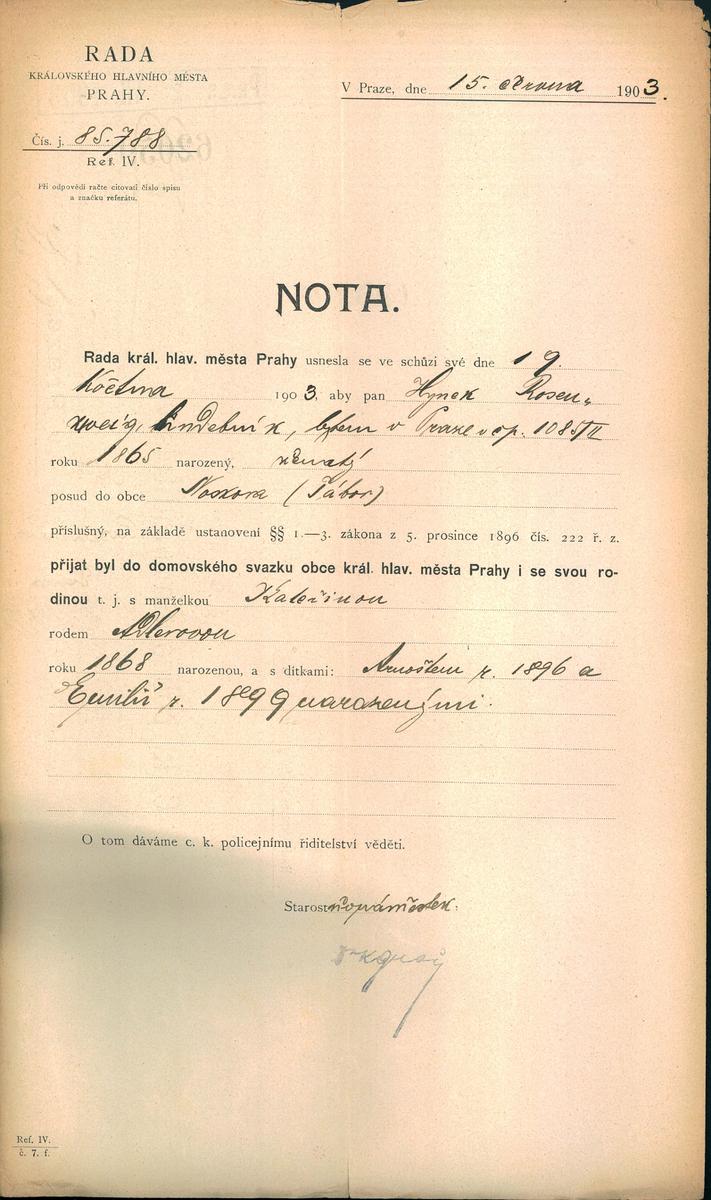 RADA
KRÁLOVSKÉHO HLAVNÍHO MĚSTA
PRAHY.
V Praze, dne 15. června 1903.
Čís. j. 85.788
Ref. IV.
Při odpovědi račte citovati číslo spisu
a značku referátu.
NOTA.
Rada král. hlav. města Prahy usnesla se ve schůzi své dne 19.
května 1903, aby pan Hynek Rosen„
zweig, hudebník, bytem v Praze čp. 1085/II
roku 1865 narozený, ženatý
posud do obce Noskova (Tábor)
příslušný, na základě ustanovení §§ 1.—3. zákona z 5. prosince 1896 čís. 222 ř. z.
přijat byl do domovského svazku obce král. hlav. města Prahy i se svou ro-
dinou t. j. s manželkou Kateřinou
rodem Adlerovou
roku 1868 narozenou, a s dítkami: Arnoštem r. 1896 a
Emilií r. 1899 narozenými.
O tom dáváme c. k. policejnímu řiditelství věděti.
Starostův náměstek:
Ref. IV.
č. 7. f.